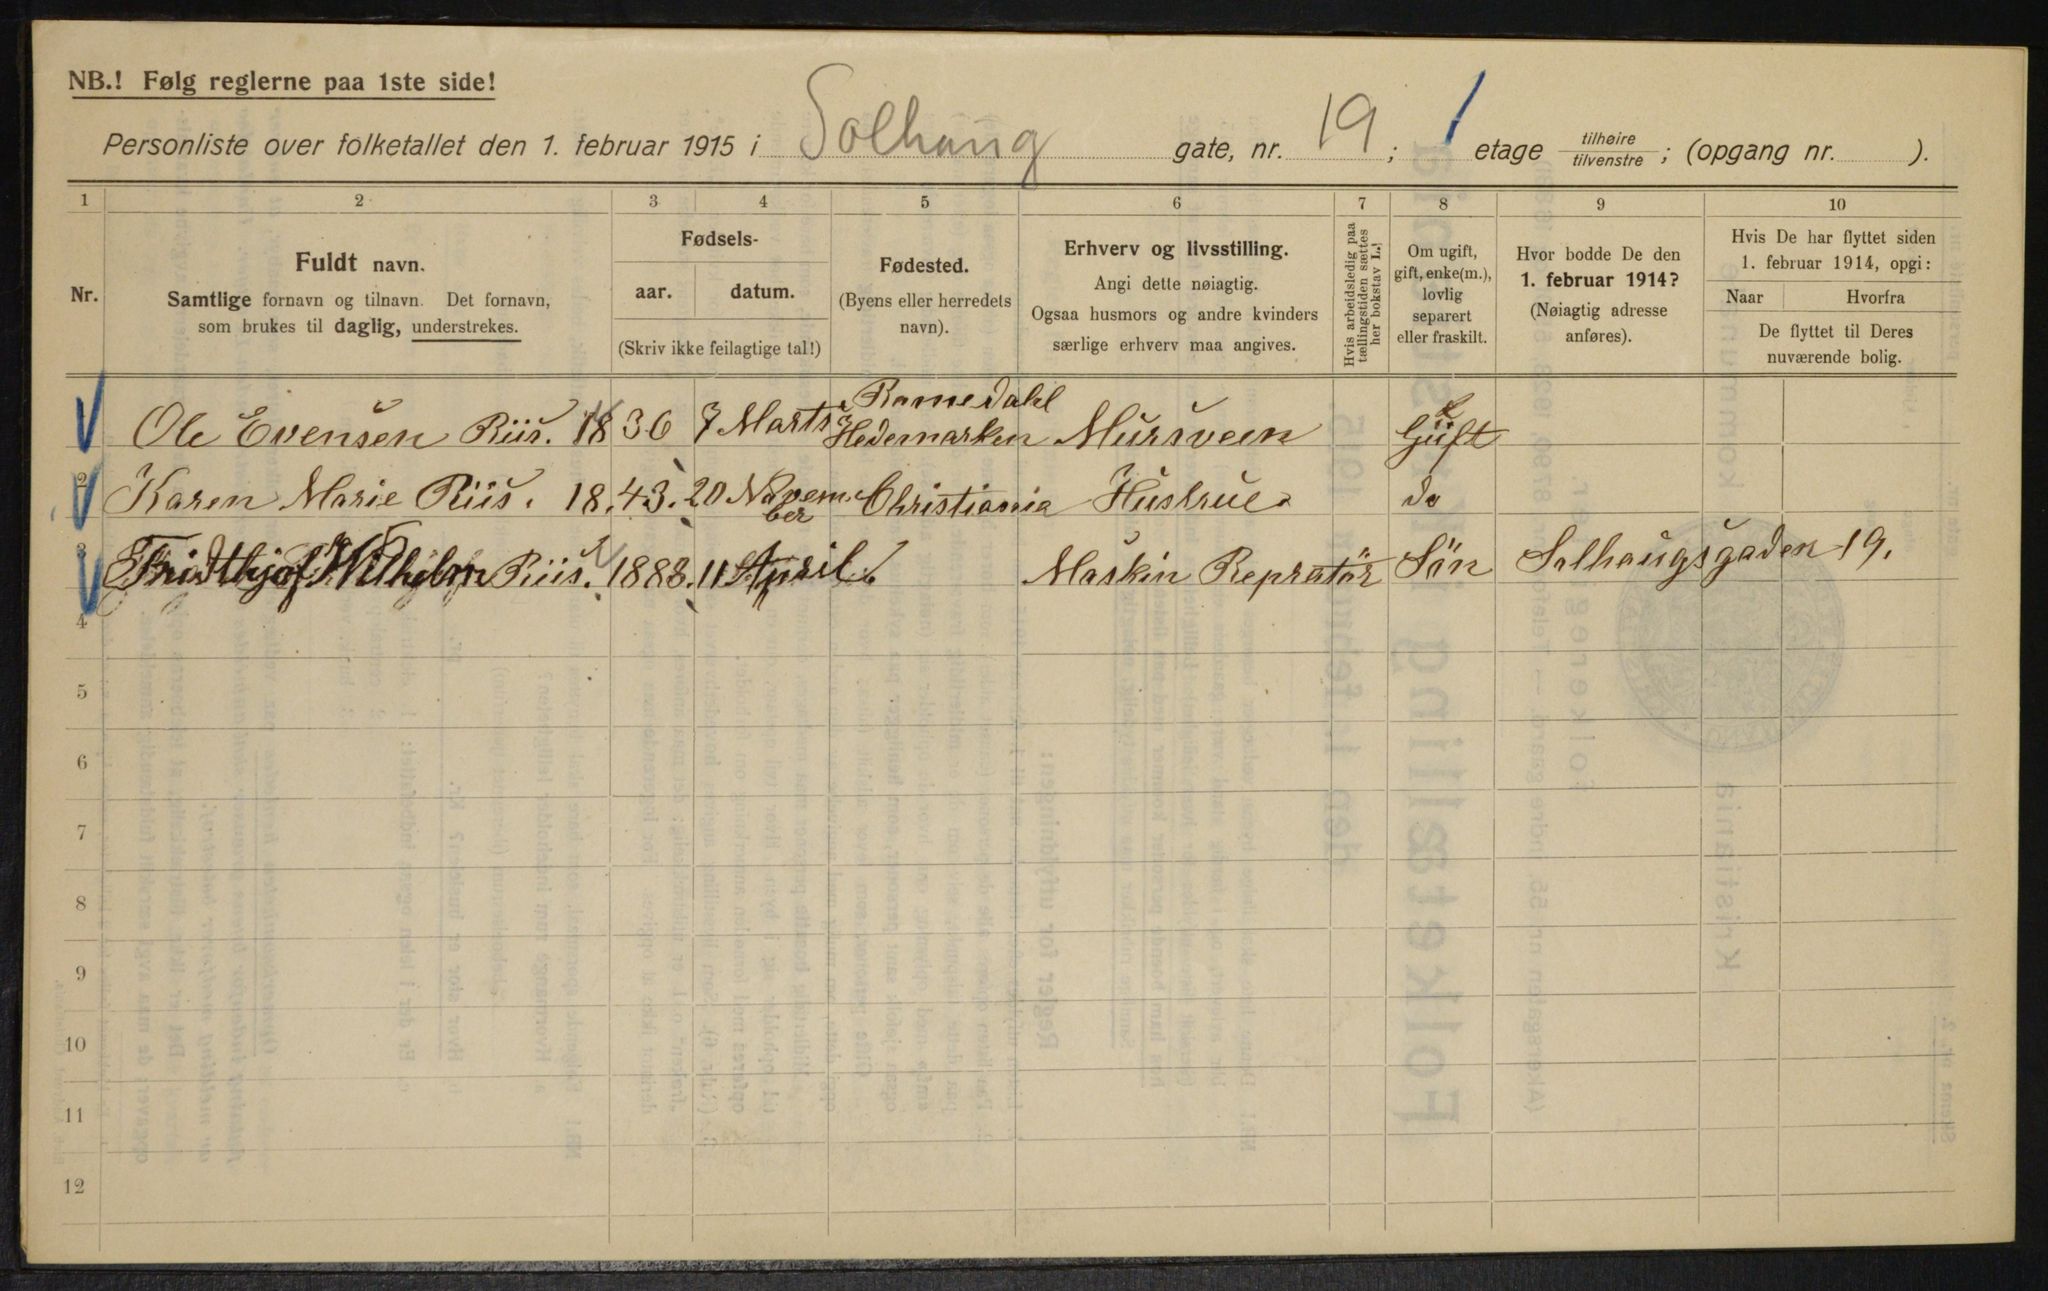 NB.! Følg reglerne paa 1ste side!
Personliste over folketallet den 1. februar 1915 i Solhaug gate, nr. 19 ; 1 etage tilhøire/tilvenstre ; (opgang nr. ).
1 2 3 4 5 6 7 8 9 10
Nr.
Fuldt navn.
Samtlige fornavn og tilnavn. Det fornavn,
som brukes til daglig, understrekes.
Fødsels-
aar. datum.
(Skriv ikke feilagtige tal!)
Fødested.
(Byens eller herredets
navn).
Erhverv og livsstilling.
Angi dette nøiagtig.
Ogsaa husmors og andre kvinders
særlige erhverv maa angives.
Hvis arbeidsledig paa
tællingstiden sættes
her bokstav L.!
Om ugift,
gift, enke(m.),
lovlig
separert
eller fraskilt.
Hvor bodde De den
1. februar 1914?
(Nøiagtig adresse
anføres).
Hvis De har flyttet siden
1. februar 1914, opgi:
Naar Hvorfra
De flyttet til Deres
nuværende bolig.
Ole Evensen Riis. 1836 7 Marts Romedahl Hedemarken Mursveen Gift
2 Karen Marie Riis. 18.43. 20 November Christiania Hustrue do
3 Fridthjof Wilhelm Riis. 1888. 11 April Maskin Repratör Sön Solhaugsgaden 19.
4
5
6
7
8
9
10
11
12